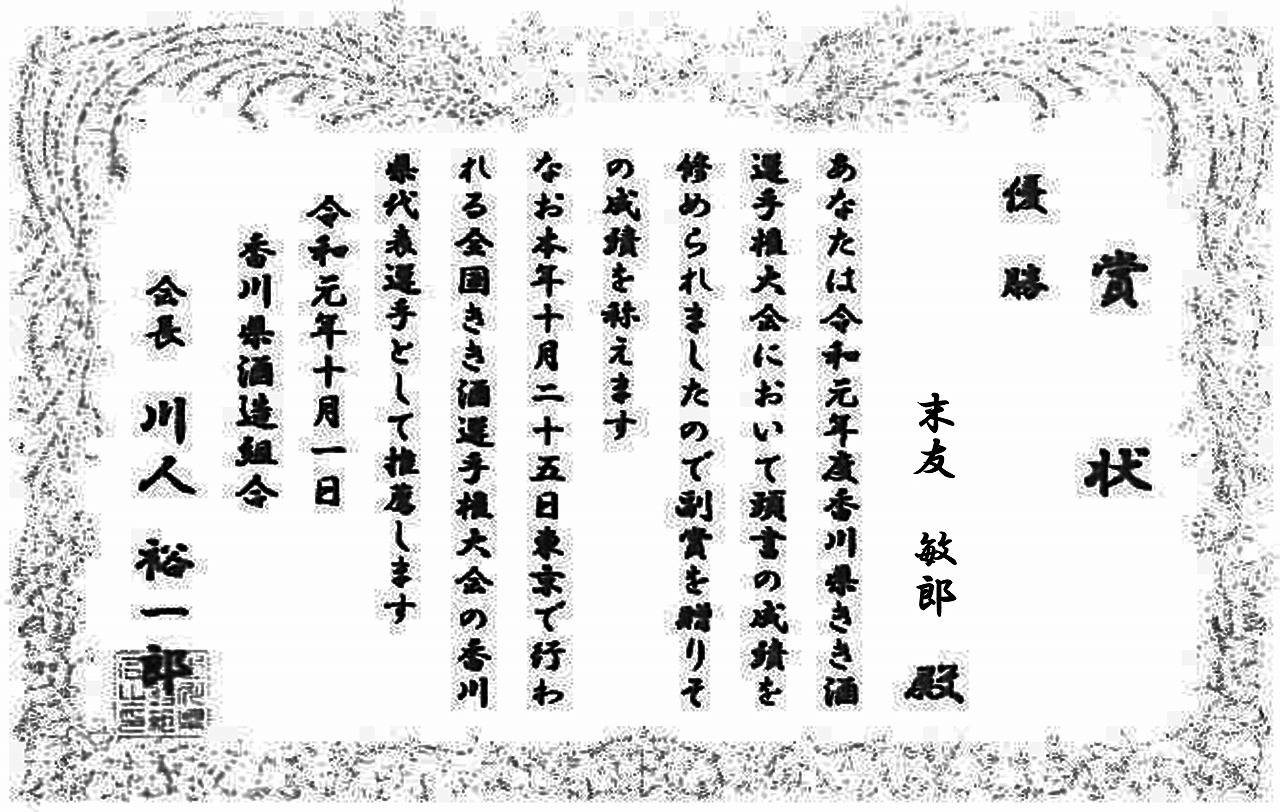 賞状
優勝
末友 敏郎 殿
あなたは令和元年度香川県きき酒
選手権大会において頭書の成績を
修められましたので副賞を贈りそ
の成績を称えます
なお本年十月二十五日東京で行わ
れる全国きき酒選手権大会の香川
県代表選手として推薦します
令和元年十月一日
香川県酒造組合
会長 川人 裕一郎